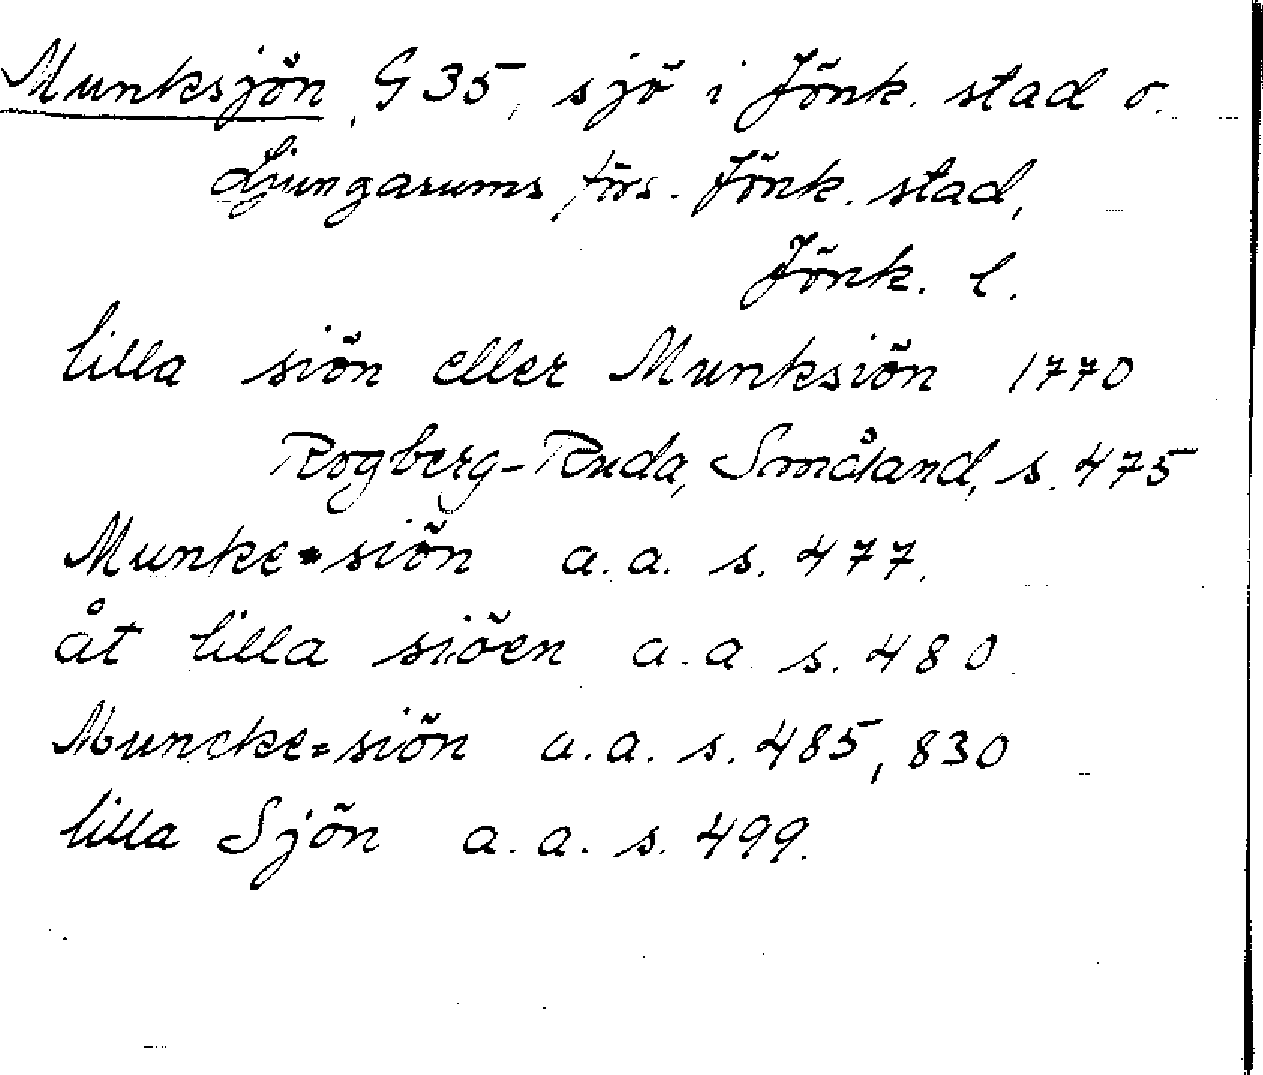 Munksjön, G 35, sjö i Jönk. stad o.
Ljungarums förs. Jönk. stad,
Jönk. l.
lilla siön eller Munksiön 1770
Rogberg-Ruda, Småland, s. 475
Munke=siön a.a. s. 477.
åt lilla siöen a.a s. 480
Muncke=siön a.a. s. 485, 830
lilla Sjön a.a. s. 499.